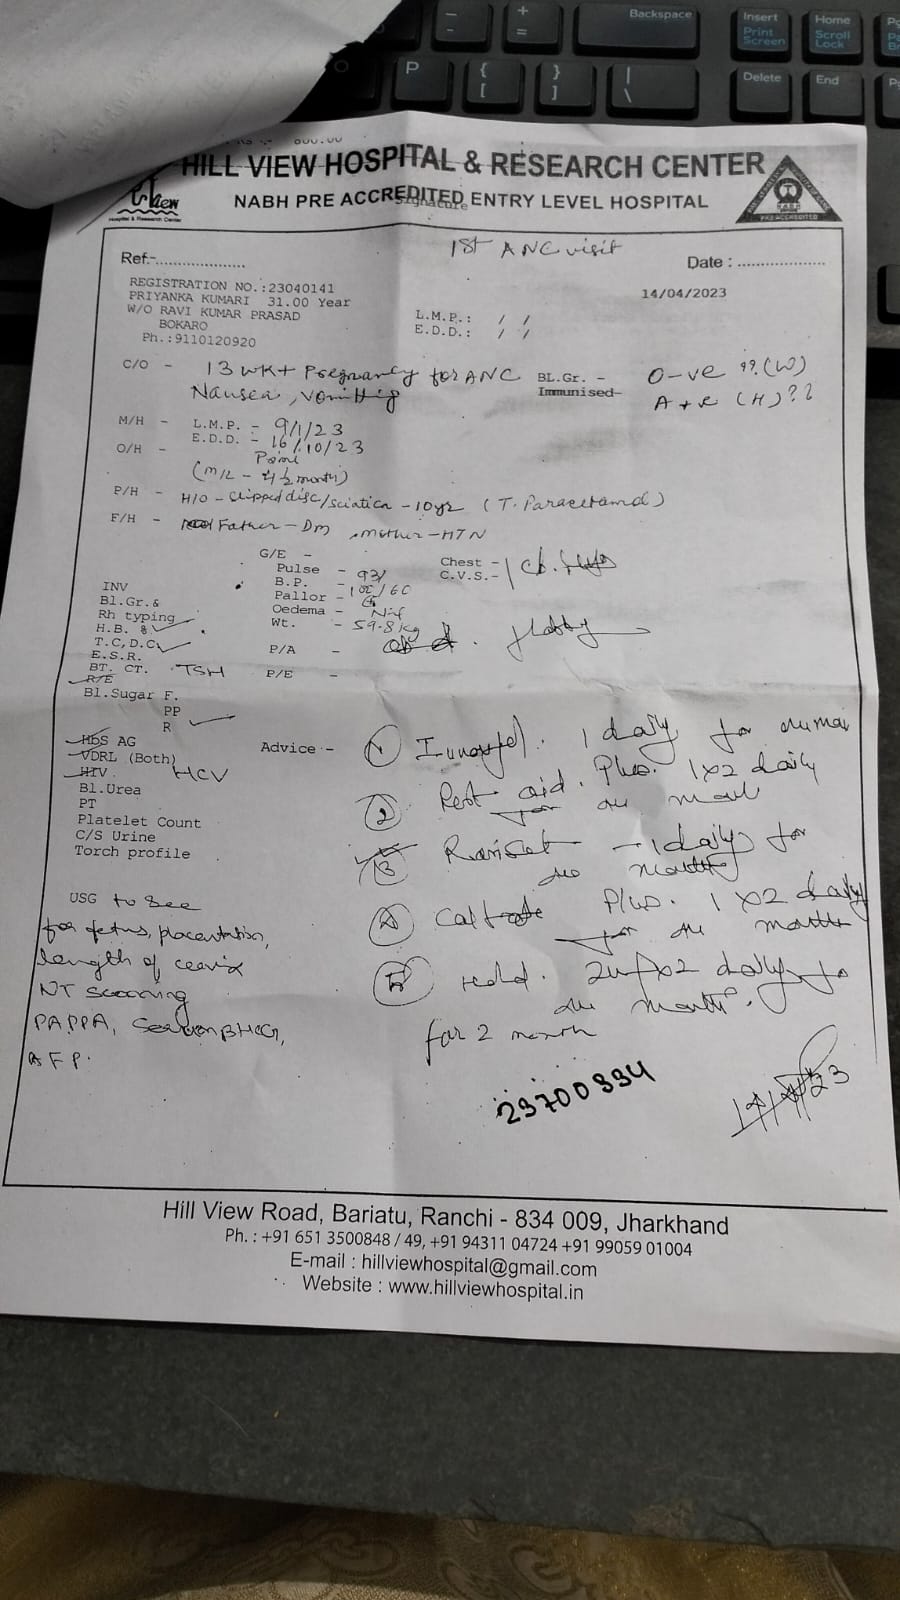 Backspace
Insert
Print Screen
Home
Scroll Lock
P
Delete
End
600.00
HILL VIEW HOSPITAL & RESEARCH CENTER
NABH PRE ACCREDITED ENTRY LEVEL HOSPITAL
Signature
View
Hospital & Research Center
NABH
PRE ACCREDITED
1st ANC visit
Ref:-....................
Date : ...................
14/04/2023
REGISTRATION NO.:23040141
PRIYANKA KUMARI 31.00 Year
W/O RAVI KUMAR PRASAD
BOKARO
Ph.:9110120920
L.M.P.: / /
E.D.D.: / /
C/O - 13 wk+ Pregnancy for ANC
Nausea, Vomitting
BL.Gr. - O-ve ??(W)
Immunised- A+ve (H)??
M/H - L.M.P. - 9/1/23
E.D.D. - 16/10/23
O/H - Primi
(M/L - 4½ month)
P/H - H/O - Slipped disc/sciatica - 10yr (T. Paracetamol)
F/H - Father - DM, mother - HTN
G/E -
Pulse - 93/
B.P. - 100/60
Pallor -
Oedema - Nil
Wt. - 59.8 kg
Chest -
C.V.S.-
P/A -
P/E -
INV
Bl.Gr.&
Rh typing
H.B. %
T.C,D.C
E.S.R.
BT. CT. TSH
R/E
Bl.Sugar F.
PP
R
HbS AG
VDRL (Both)
HIV. HCV
Bl.Urea
PT
Platelet Count
C/S Urine
Torch profile
USG to see
for fetus, placentation,
length of cervix
NT scanning
PAPPA, Serum BHCG,
AFP.
Advice:-
1 1 daily for
2 aid. Plus. 1x2 daily
for
3 - 1 daily for
4 Plus. 1x2 daily
for
5 daily for
for 2 month
23700334
Hill View Road, Bariatu, Ranchi - 834 009, Jharkhand
Ph. : +91 651 3500848 / 49, +91 94311 04724 +91 99059 01004
E-mail : hillviewhospital@gmail.com
Website : www.hillviewhospital.in